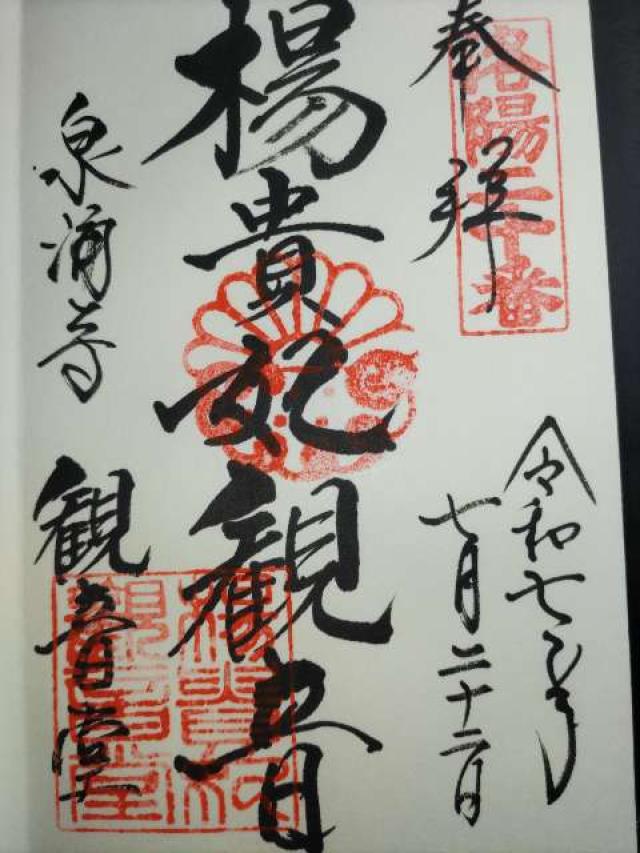 奉拝
洛陽二十番
令和七年
七月二十二日
楊貴妃観音
泉涌寺
観音堂
楊貴妃
観音堂